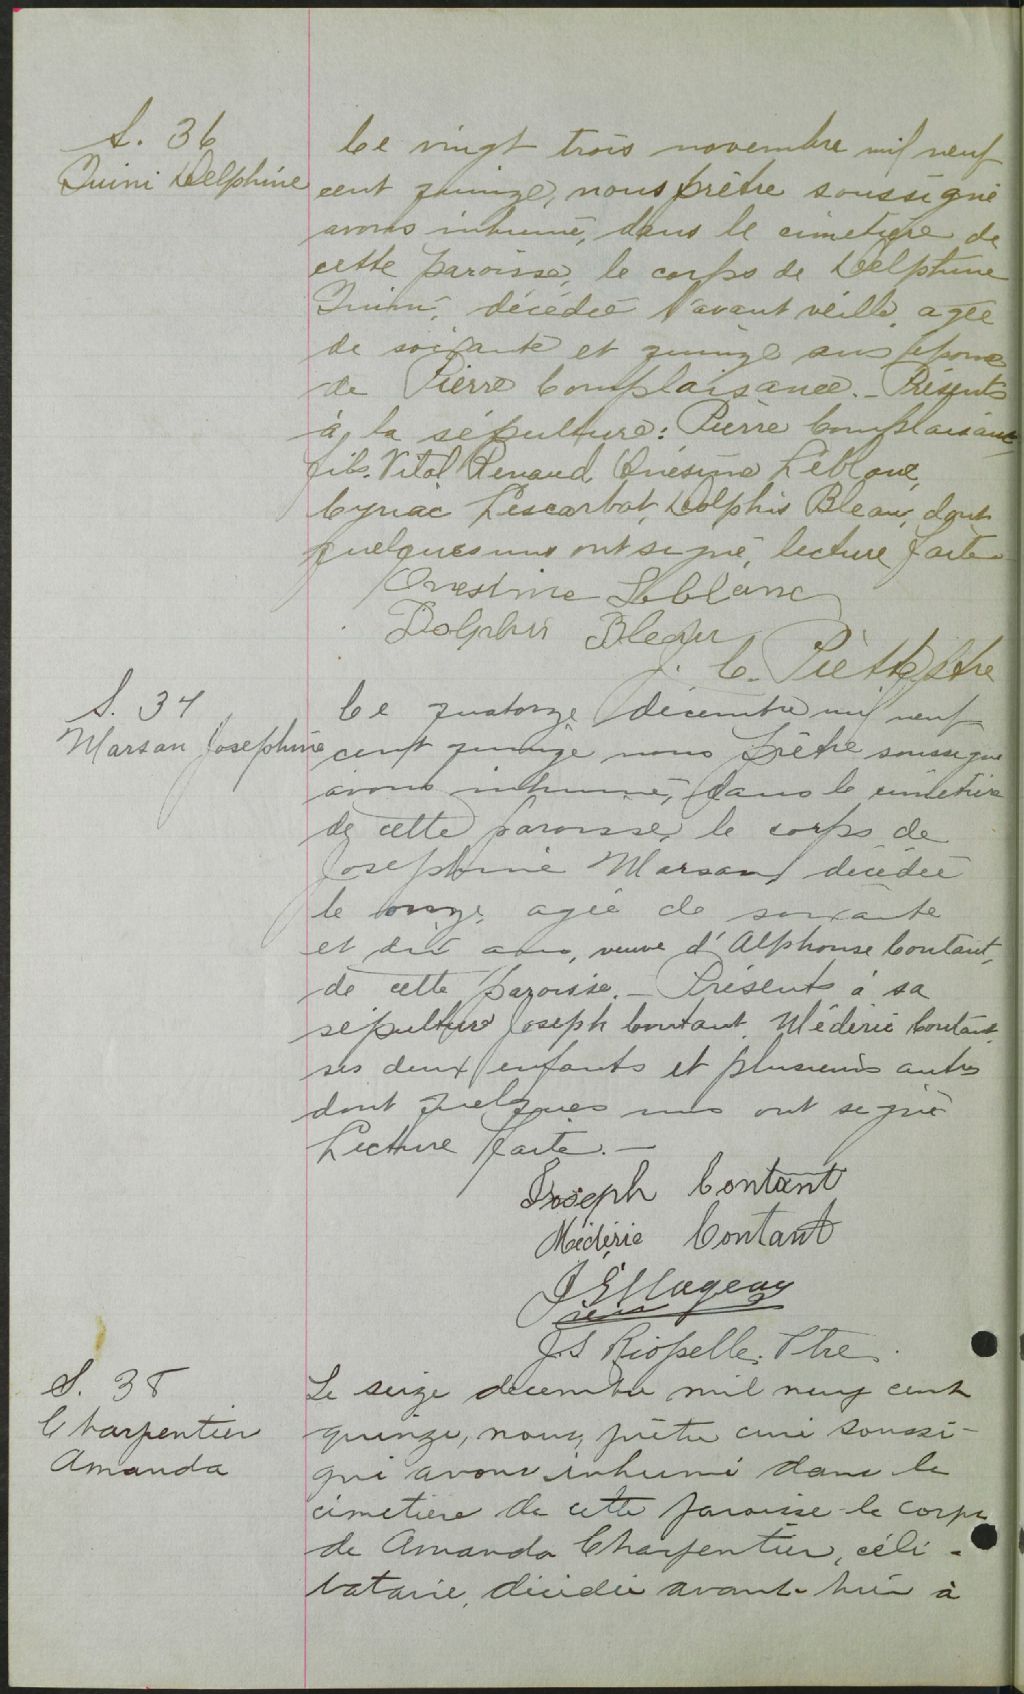 S. 36
Quini Delphine
Ce vingt trois novembre mil neuf
cent quinze, nous prêtre soussigné
avons inhumé, dans le cimetière de
cette paroisse, le corps de Delphine
Quini, décédée l'avant veille, agée
de soixante et quinze ans épouse
de Pierre Complaisance. - Présents
à la sépulture: Pierre Complaisance
fils. Vital Renaud, Onésime Leblanc,
Cyriac Lescarbot, Dolphis Bleau, dont
quelques uns ont signé, lecture faite
Onesime Leblanc
Dolphis Bleau
J. C. Piette Ptre
S. 37
Marsan Josephine
Ce quatorze décembre mil neuf
cent quinze nous prêtre soussigné
avons inhumé, dans le cimetière
de cette paroisse, le corps de
Josephine Marsan, décédée
le onze, agée de soixante
et dix ans, veuve d'Alphonse Contant,
de cette paroisse. - Présents à sa
sépulture Joseph Contant, Médéric Contant
ses deux enfants et plusieurs autres
dont quelques uns ont signé
Lecture faite. -
Joseph Contant
Médéric Contant
J. S Riopelle. Ptre.
S. 38
Charpentier
Amanda
Le seize decembre mil neuf cent
quinze, nous, prêtre curé soussi-
gné avons inhumé dans le
cimetière de cette paroisse le corps
de Amanda Charpentier, céli-
bataire, décédée avant-hier à